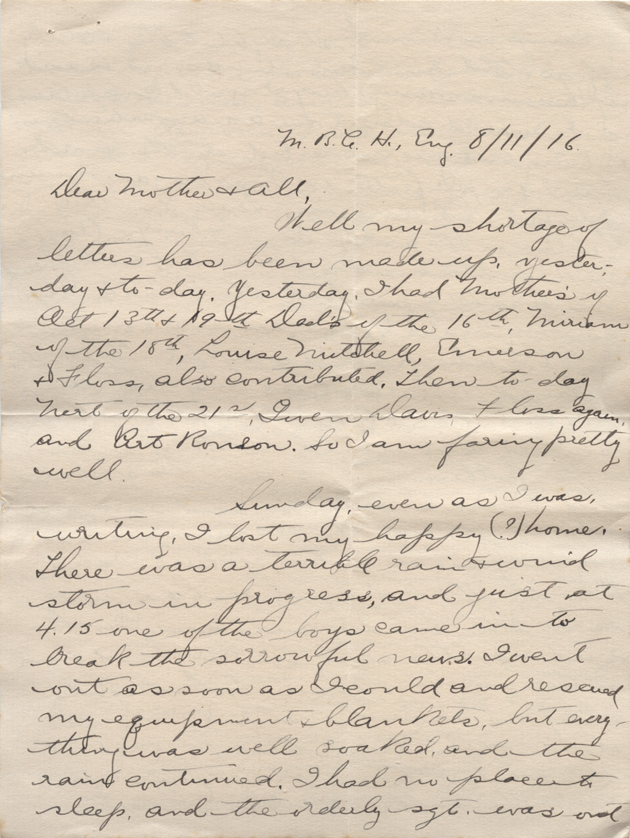 M.B.C.H., Eng. 8/11/16
Dear Mother & All,
Well my shortage of
letters has been made up, yester-
day & to-day. Yesterday, I had Mother's of
Oct 13th & 19th Dad's of the 16th, Miriam
of the 18th, Louise Mitchell, Emerson
& Floss, also contributed. Then to-day
of the 21st, Gwen Davis, Floss again,
and Art Ronson. So I am faring pretty
well.
Sunday, even as I was
writing, I lost my happy (?) home.
There was a terrible rain & wind
storm in progress, and just at
4.15 one of the boys came in to
break the sorrowful news. I went
out as soon as I could and rescued
my equipment & blankets, but every-
thing was well soaked, and the
rain continued. I had no place to
sleep, and the orderly sgt. was out